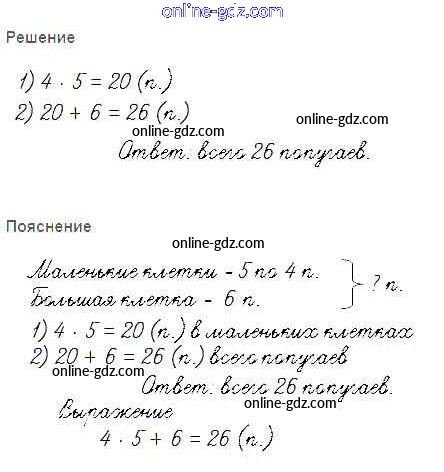 online-gdz.com
Решение
1) 4 · 5 = 20 (п.)
2) 20 + 6 = 26 (п.)
online-gdz.com
online-gdz.com
Ответ: всего 26 попугаев.
Пояснение
online-gdz.com
Маленькие клетки - 5 по 4 п.
Большая клетка - 6 п.
? п.
1) 4 · 5 = 20 (п.) в маленьких клетках
2) 20 + 6 = 26 (п.) всего попугаев
online-gdz.com
Ответ: всего 26 попугаев.
online-gdz.com
Выражение
4 · 5 + 6 = 26 (п.)